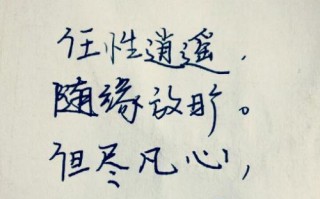 任性逍遥，
随缘放旷。
但尽凡心，